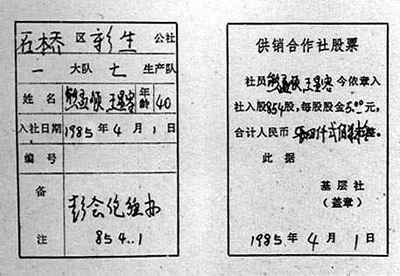 石桥 区 新生 公社
一 大队 七 生产队
姓名 王星容 年龄 40
入社日期 1985年4月1日
编号
备注
彭会伦经办
85 4..1
供销合作社股票
社员 王星容 今依章入
社入股854股，每股股金5.00元，
合计人民币 仟弍佰柒拾
此据
基层社
（盖章）
1985年4月1日